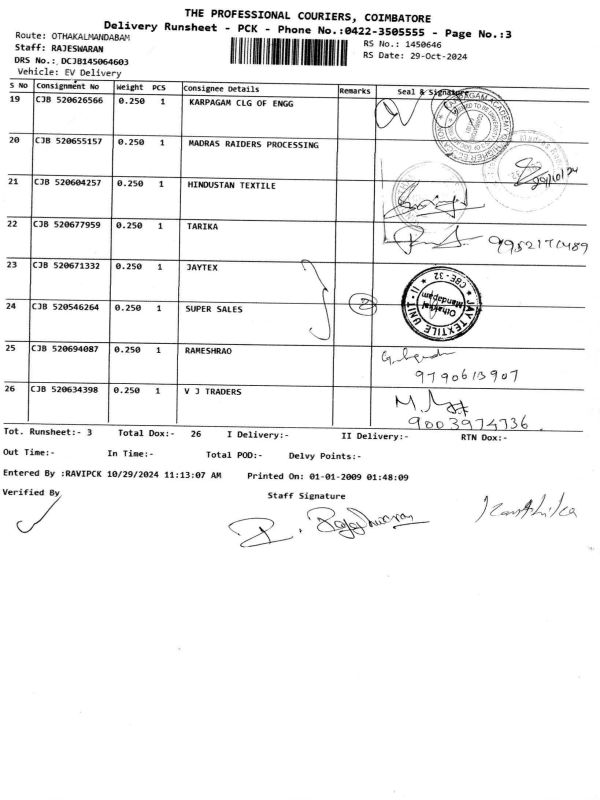 THE PROFESSIONAL COURIERS, COIMBATORE
Delivery Runsheet - PCK - Phone No.:0422-3505555 - Page No.:3
Route: OTHAKALMANDABAM
RS No.: 1450646
Staff: RAJESWARAN
RS Date: 29-Oct-2024
DRS No.: DCJB145064603
Vehicle: EV Delivery
S No Consignment No Weight PCS Consignee Details Remarks Seal & Signature
19 CJB 520626566 0.250 1 KARPAGAM CLG OF ENGG
20 CJB 520655157 0.250 1 MADRAS RAIDERS PROCESSING
29/10/24
21 CJB 520604257 0.250 1 HINDUSTAN TEXTILE
22 CJB 520677959 0.250 1 TARIKA
23 CJB 520671332 0.250 1 JAYTEX
JAY TEXTILE UNIT - II
CBE-32
Othakkal
Mandapam
24 CJB 520546264 0.250 1 SUPER SALES
2
25 CJB 520694087 0.250 1 RAMESHRAO
9790613907
26 CJB 520634398 0.250 1 V J TRADERS
9003974736
Tot. Runsheet:- 3 Total Dox:- 26 I Delivery:- II Delivery:- RTN Dox:-
Out Time:- In Time:- Total POD:- Delvy Points:-
Entered By :RAVIPCK 10/29/2024 11:13:07 AM Printed On: 01-01-2009 01:48:09
Verified By Staff Signature
R. Rajeshwaran